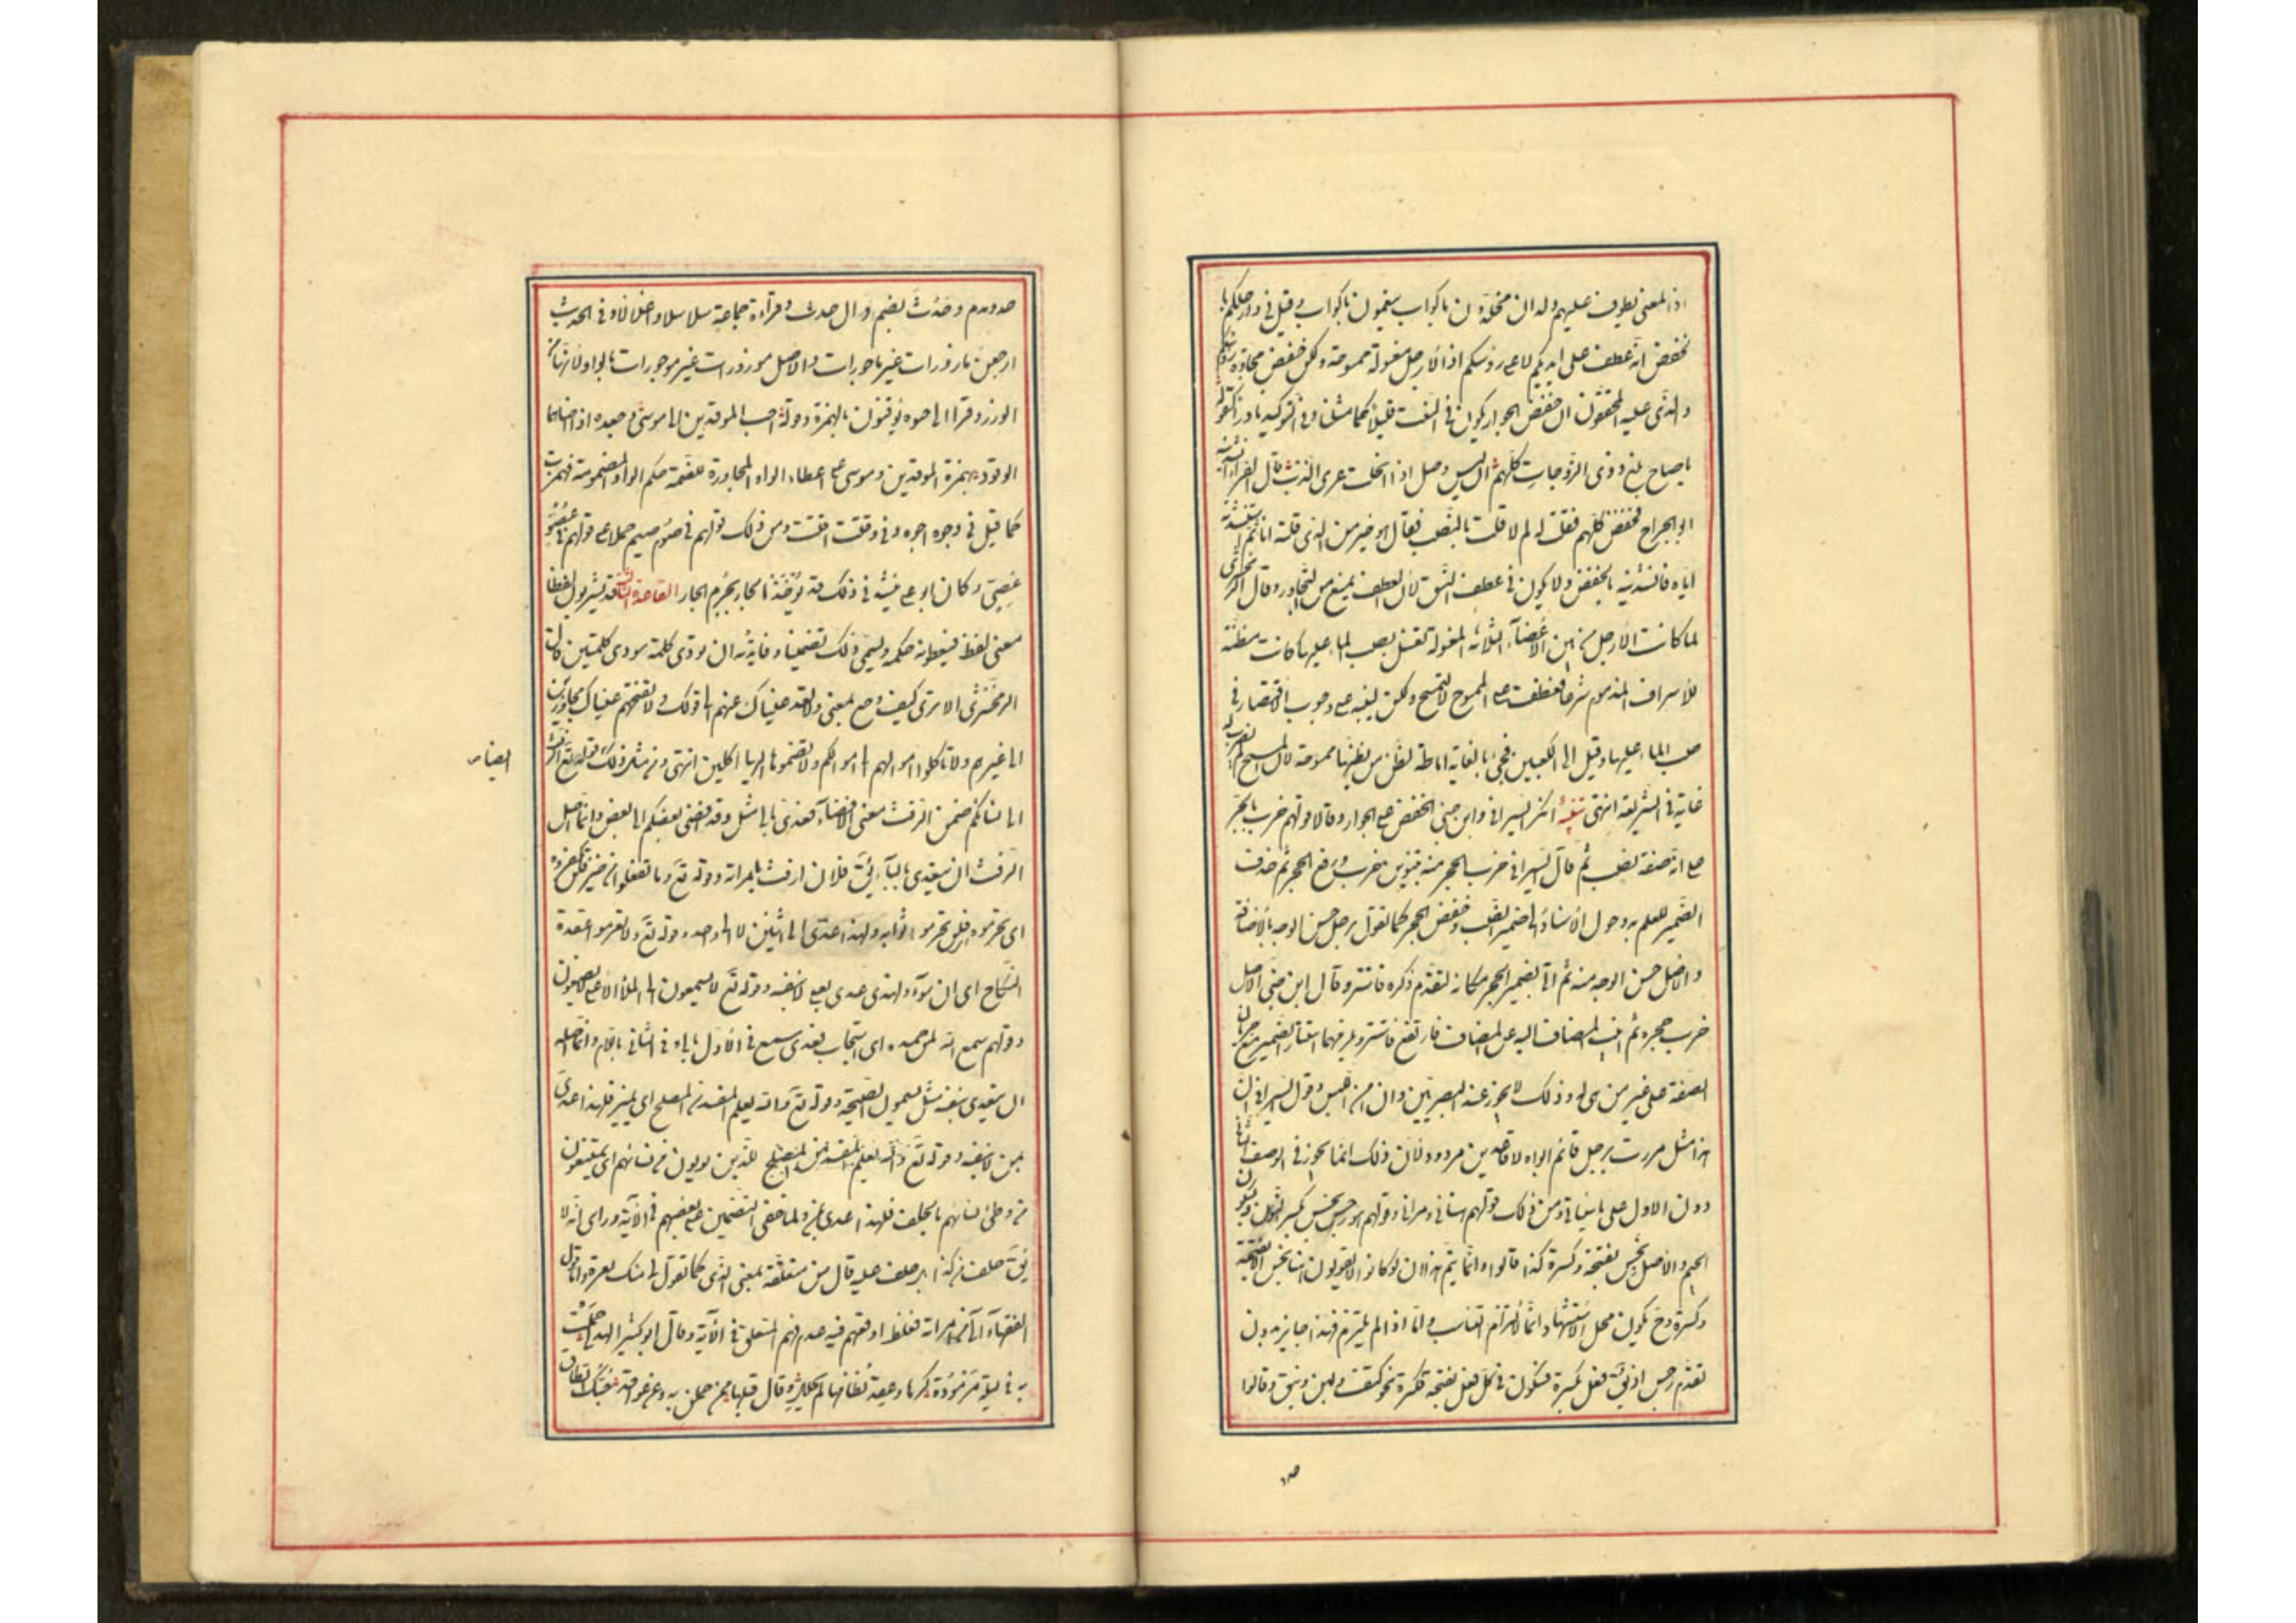 اذ المعنى يطوف عليهم ولدان مخلدون باكواب ينعمون باكواب وقيل في وارجلكم با
لخفض انه عطف على ايديكم لا على رؤسكم اذ الارجل مغسولة لا ممسوحة ولكن خفض لمجاورة رؤسكم
والذى عليه المحققون ان خفض الجوار يكون في النعت قليلا كما مثلنا وفي التوكيد نادرا كقوله
يا صاح بلغ ذوى الزوجات كلهم ان ليس وصل اذا انحلت عرى الذنب قال الفراء انشدنيه
ابو الجراح بخفض كلهم فقلت له لم لا قلت بالنصب فقال هو خير من الذى قلته انا ثم استنشدته
اياه فانشدنيه بالخفض ولا يكون في عطف النسق لان العطف يمنع من التجاور وقال الزمخشرى
لما كانت الارجل من بين الاعضاء الثلاثة المغسولة تغسل بصب الماء عليها كانت مظنة
للاسراف المذموم شرعا فعطفت على الممسوح لا لتمسح ولكن لينبه على وجوب الاقتصار في
صب الماء عليها وقيل الى الكعبين فجئ بالغاية اماطة لظن من يظنها ممسوحة لان المسح لم يضرب له
غاية في الشريعة انتهى تنبيه انكر السيرافى وابن جنى الخفض على الجوار وقالا قولهم خرب بالجر
على انه صفة لضب ثم قال السيرافى خرب الحجر منه بتنوين خرب ورفع الحجر ثم حذف
الضمير للعلم به وحول الاسناد الى ضمير الضب وخفض الحجر كما تقول برجل حسن الوجه بالاضافة
والاصل حسن الوجه منه ثم اتى بضمير الحجر مكانه لتقدم ذكره فاستتر وقال ابن جنى الاصل
خرب حجره ثم انيب المضاف اليه عن المضاف فارتفع فاستتر ويلزمهما استتار الضمير مع جريان
الصفة على غير من هى له وذلك لا يجوز عند البصريين وان امن اللبس وقول السيرافى ان
هذا مثل مررت برجل قائم ابواه لا قاعدين مردود لان ذلك انما يجوز في الوصف الثانى
دون الاول على ما سياتى ومن ذلك قولهم هنانى ومرانى وقولهم هو رجس نجس بكسر النون وسكون
الجيم والاصل نجس بفتحة وكسرة كذا قالوا وانما يتم هذا ان لو كانوا لا يقولون هنا نجس الا بفتحة
وكسرة وح يكون محل الاستشهاد انما لالتزام التناسب واما اذا لم يلتزم فهذا جايز بدون
تقدم رجس اذ يق فعل بكسرة فسكون في كل فعل بفتحة فكسرة نحو كتف ولبن ونبق وقالوا
صد
حدوث بضم دال حدث وقراءة جماعة سلاسلا واغلالا وفي الحديث
ارجعن مازورات غير ماجورات والاصل موزورات غير موجورات بالواو لانه من
الوزر وقرا ابى حيوه يؤقنون بالهمزة وقوله احب المؤقدين الى مؤسى وجعده اذ اضاءها
الوقود بهمزة المؤقدين ومؤسى على اعطاء الواو المجاورة للضمة حكم الواو المضمومة فهمزت
كما قيل في وجوه اجوه وفي وقتت اقتت ومن ذلك قولهم في صوم صيم حملا على قولهم في عصو
عصى وكان ابو على ينشد في ذلك قد يؤخذ الجار بجرم الجار القاعدة الثالثة قد يشربون لفظا
معنى لفظ فيعطونه حكمه ويسمى ذلك تضمينا وفايدته ان تودى كلمة مودى كلمتين قال
الزمخشرى الا ترى كيف رجع معنى ولا تعد عيناك عنهم الى قولك ولا تقتحم عيناك مجاوزتين
الى غيرهم ولا تاكلوا اموالهم الى اموالكم ولا تضموها اليها اكلين انتهى ومن مثل ذلك قوله تع الرفث
الى نسائكم ضمن الرفث معنى الافضاء فعدى بالى مثل وقد افضى بعضكم الى بعض وانما اصل
الرفث ان يتعدى بالباء يق فلان ارفث بامراته وقوله تع وما تفعلوا من خير فلن تكفروه
اى تحرموه اى فلن تحرموا ثوابه ولهذا عدى الى اثنين لا الى واحد وقوله تع ولا تعزموا عقدة
النكاح اى لا تنووا ولهذا عدى بنفسه لا بعلى وقوله تع لا يسمعون الى الملاء الاعلى لا يصغون
وقولهم سمع الله لمن حمده اى استجاب فعدى سمع في الاول بالى وفي الثانى باللام وانما اصله
ان يتعدى بنفسه مثل يسمعون الصيحة وقوله تع والله يعلم المفسد من المصلح اى يميز فلهذا عدى
بمن لا بنفسه وقوله تع والله يعلم المفسد من المصلح للذين يولون من نسائهم اى يمتنعون
من وطئ نسائهم بالحلف فلهذا عدى بمن ولما خفى التضمين على بعضهم في الآية وراى انه لا
يق حلف من كذا بل حلف عليه قال من متعلقة بمعنى الذى كما تقول لى منك مبرة واما قول
الفقهاء الى من امراته فغلط اوقعهم فيه عدم فهم المتعلق في الآية وقال ابو كبير الهذلى حملت
به في ليلة مزؤدة كرها وعقد نطاقها لم يحلل وقال قبله ممن حملن به وهن عواقد حبك النطاق
ايضا